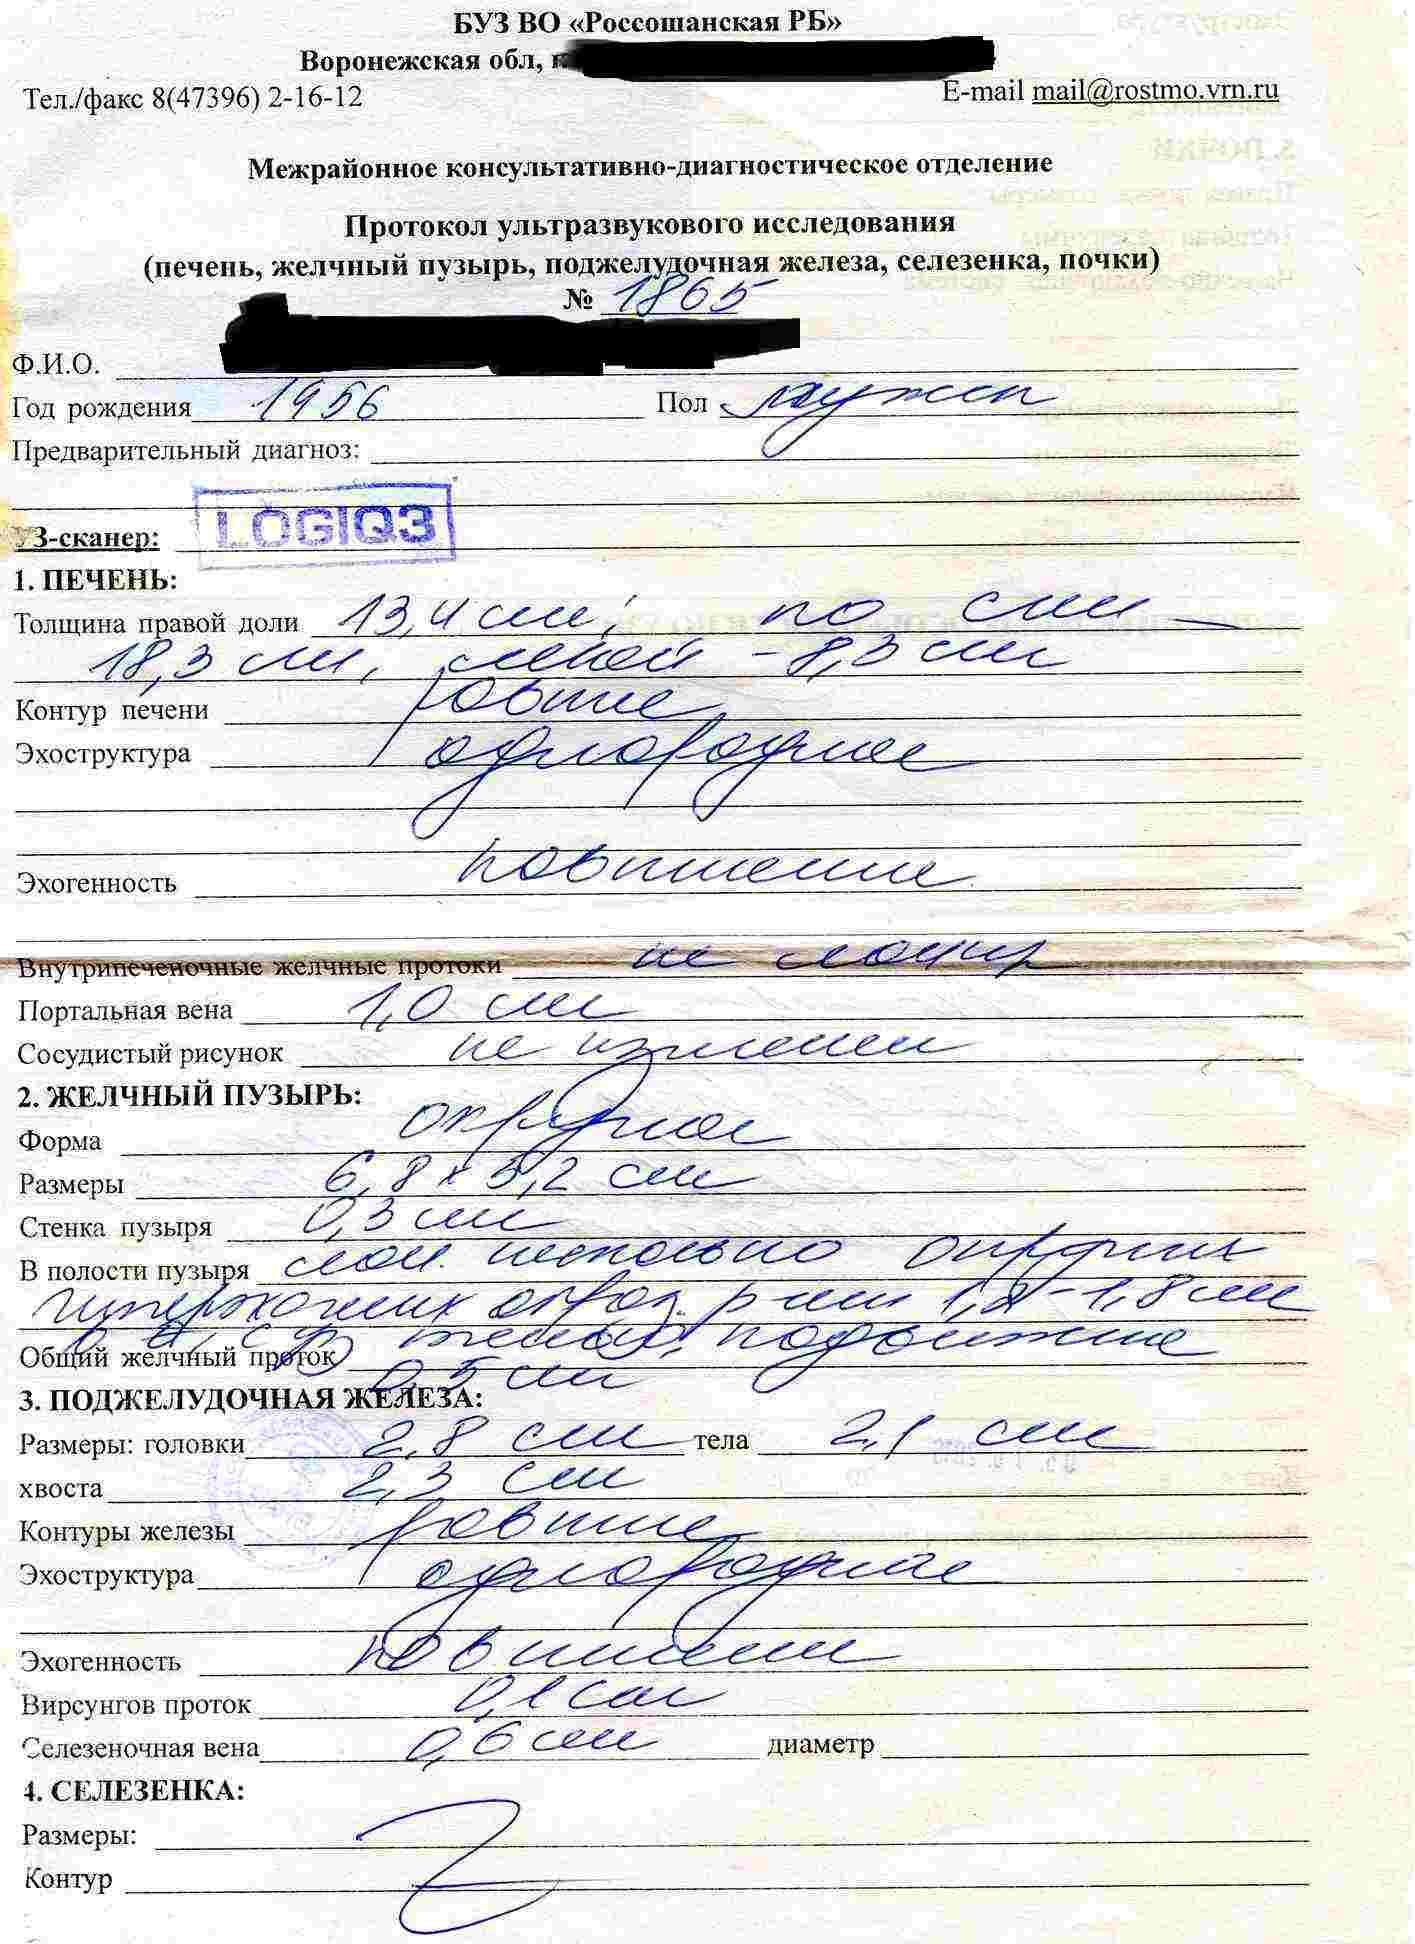 БУЗ ВО «Россошанская РБ»
Воронежская обл,
Тел./факс 8(47396) 2-16-12 E-mail mail@rostmo.vrn.ru
Межрайонное консультативно-диагностическое отделение
Протокол ультразвукового исследования
(печень, желчный пузырь, поджелудочная железа, селезенка, почки)
№ 1865
Ф.И.О.
Год рождения 1956 Пол мужск
Предварительный диагноз:
УЗ-сканер: LOGIQ3
1. ПЕЧЕНЬ:
Толщина правой доли 13,4 см,
18,3 см, левой - 8,3 см
Контур печени ровные
Эхоструктура однородная
Эхогенность повышена
Внутрипеченочные желчные протоки не лоцир
Портальная вена 1,0 см
Сосудистый рисунок не изменен
2. ЖЕЛЧНЫЙ ПУЗЫРЬ:
Форма округлая
Размеры 6,8 х 3,2 см
Стенка пузыря 0,3 см
В полости пузыря лоц. несколько округлых
гиперэхогенных образ. 1,8 см
Общий желчный проток с тенью, подвижные
0,5 см
3. ПОДЖЕЛУДОЧНАЯ ЖЕЛЕЗА:
Размеры: головки 2,8 см тела 2,1 см
хвоста 2,3 см
Контуры железы ровные
Эхоструктура однородная
Эхогенность повышена
Вирсунгов проток 0,1 см
Селезеночная вена 0,6 см диаметр
4. СЕЛЕЗЕНКА:
Размеры:
Контур